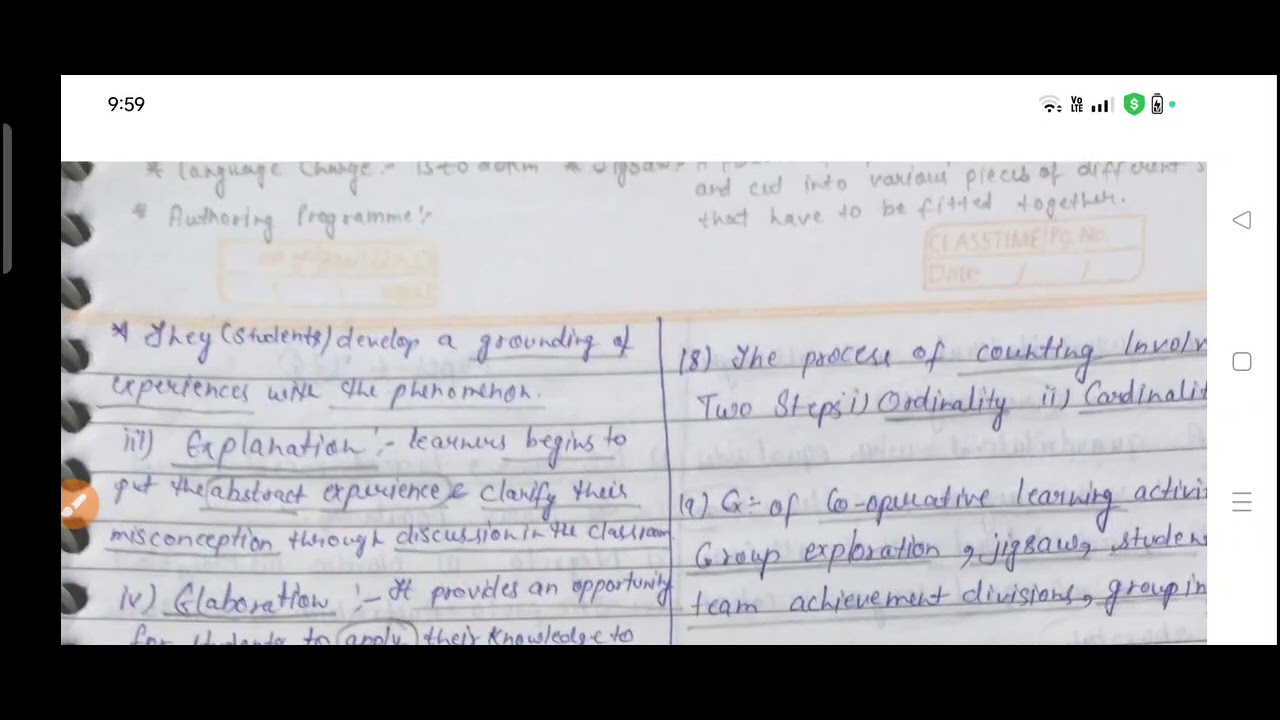 9:59
Vo
LTE
* Language Change:- is to
and cut into various pieces of different
* Authoring Programme:-
that have to be fitted together.
CLASSTIME Pg. No.
Date / /
* They (students) develop a grounding of
experiences with the phenomenon.
iii) Explanation :- learners begins to
put the abstract experience & clarify their
misconception through discussion in the classroom
iv) Elaboration :- It provides an opportunity
for students to apply their knowledge to
18) The process of counting Involv
Two Steps i) Ordinality ii) Cardinalit
19) Ex:- of Co-operative learning activi
Group exploration, jigsaw, studen
team achievement divisions, group in